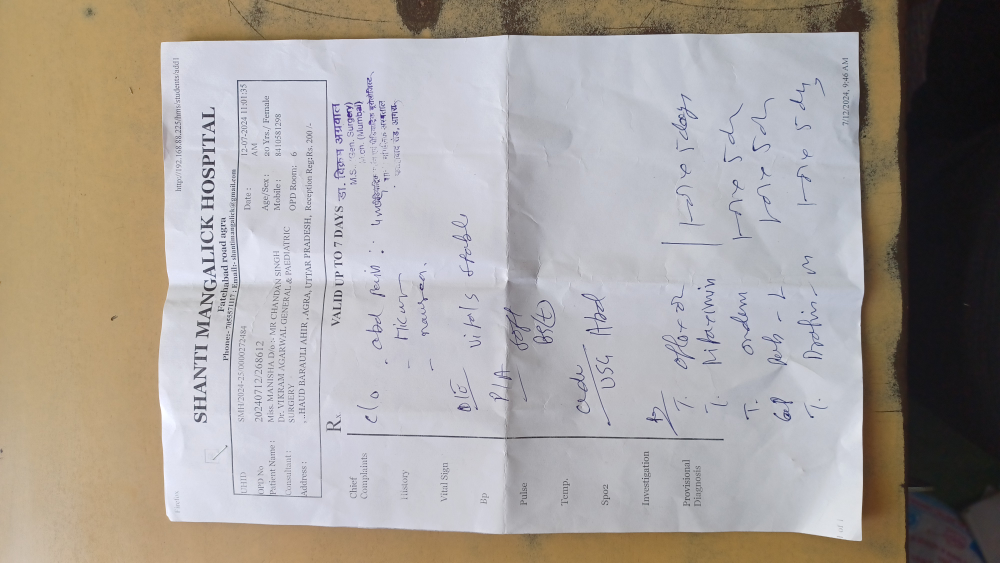 http://192.168.88.225/hms/students/add1
SHANTI MANGALICK HOSPITAL
Fatehabad road agra
Phone:- 7055871117 : Email:- shantimangalick@gmail.com
UHID SMH/2024-25/0000272484 Date : 12-07-2024 11:01:35 AM
OPD No 20240712/268612
Patient Name : Miss. MANISHA D/o :- MR CHANDAN SINGH Age/Sex : 20 Yrs./ Female
Consultant : Dr. VIKRAM AGARWAL GENERAL & PAEDIATRIC SURGERY Mobile : 8410581298
OPD Room: 6
Address : , ,,HAUD BARAULI AHIR , AGRA, UTTAR PRADESH, Reception Reg:Rs. 200/-
Rx VALID UP TO 7 DAYS
डा. विक्रम अग्रवाल
M.S. (Gen. Surgery)
(Mumbai)
Chief Complaints
History
Vital Sign
Bp
Pulse
Temp.
Spo2
Investigation
Provisional Diagnosis
C/o . abd pain :
- nausea.
O/E Vitals stable
P/A soft
BS(+)
USG Abd
Rx
T. oflox oz 1 x 5 days
T. rifaximin
T. ondem 5 d
Cap 5 d
T. 5 d
1 of 1
7/12/2024, 9:46 AM